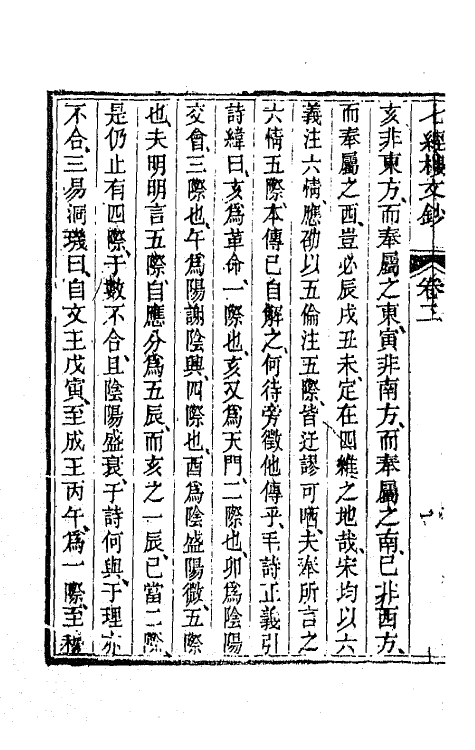 七經樓文鈔 卷二
亥非東方、而奉屬之東、寅非南方、而奉屬之南、巳非西方、
而奉屬之西、豈必辰戌丑未、定在四維之地哉、宋均以六
義注六情、應劭以五倫注五際、皆迂謬可哂、夫奉所言之
六情五際、本傳已自解之、何待旁徵他傳乎、毛詩正義引
詩緯曰、亥爲革命、一際也、亥又爲天門、二際也、卯爲陰陽
交會、三際也、午爲陽謝陰興、四際也、酉爲陰盛陽微、五際
也、夫明明言五際、自應分爲五辰、而亥之一辰、已當二際、
是仍止有四際、于數不合、且陰陽盛衰、于詩何與、于理亦
不合、三易洞璣曰、自文王戊寅、至成王丙午、爲一際、至